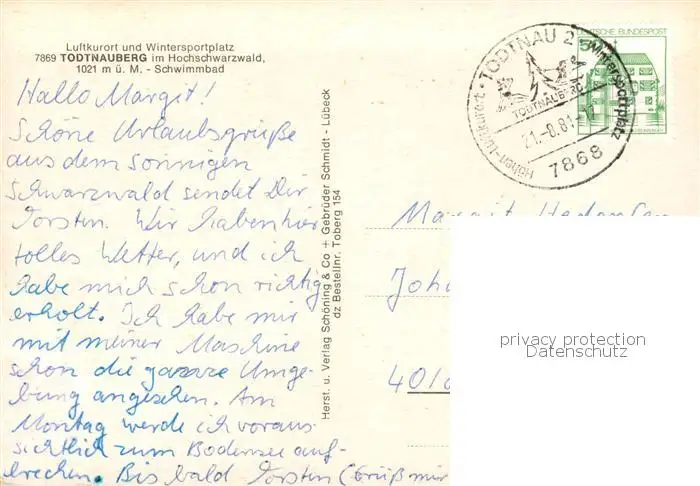 Luftkurort und Wintersportplatz
7869 TODTNAUBERG im Hochschwarzwald,
1021 m ü. M. - Schwimmbad
Hallo Margit!
Schöne Urlaubsgrüße
aus dem sonnigen
Schwarzwald sendet Dir
Torsten. Wir haben hier
tolles Wetter, und ich
habe mich schon richtig
erholt. Ich habe mir
mit meiner Maschine
schon die ganze Umge-
bung angesehen. Am
Montag werde ich voraus-
sichtlich zum Bodensee auf-
brechen. Bis bald Torsten (Grüß mir
Herst. u. Verlag Schöning & Co + Gebrüder Schmidt - Lübeck
dz Bestellnr. Toberg 154
DEUTSCHE BUNDESPOST
TODTNAU 2
Wintersportplatz
Höhen-Luftkurort
TODTNAUBERG
21.-8.81
7868
Margit
Joh
4010
privacy protection
Datenschutz